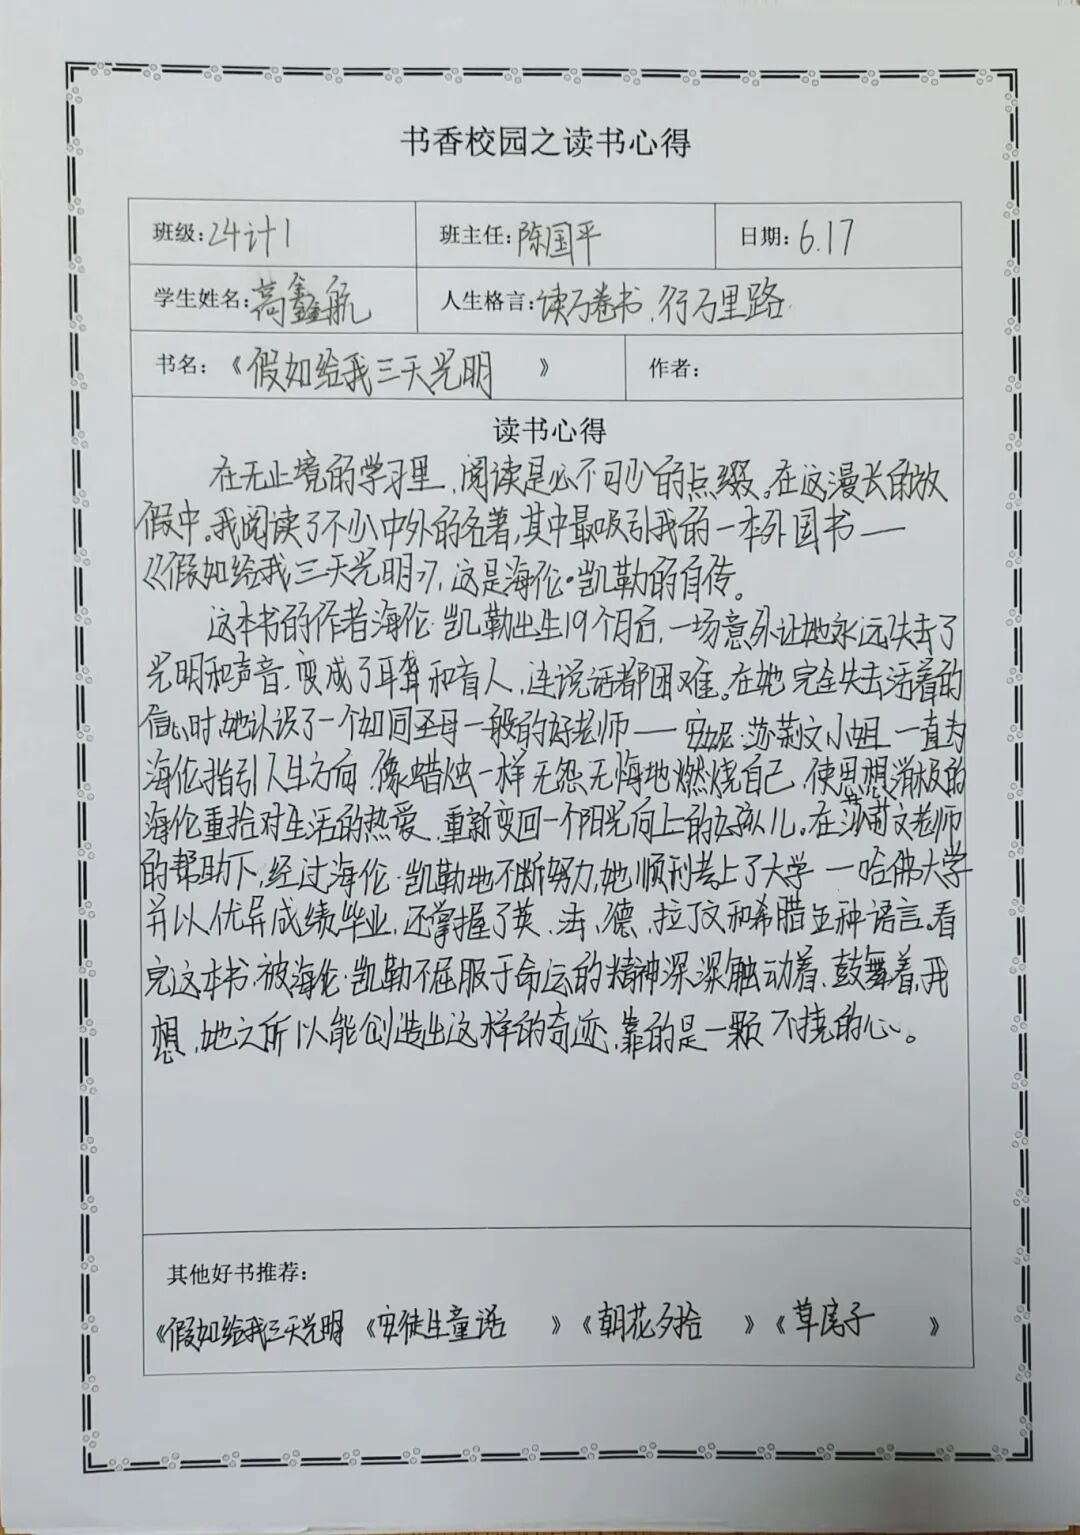 书香校园之读书心得
班级:24计1 班主任:陈国平 日期:6.17
学生姓名:高鑫航 人生格言:读万卷书、行万里路.
书名:《假如给我三天光明 》 作者:
读书心得
在无止境的学习里,阅读是必不可少的点缀。在这漫长的放
假中。我阅读了不少中外的名著,其中最吸引我的一本外国书——
《假如给我三天光明》,这是海伦·凯勒的自传。
这本书的作者海伦·凯勒出生19个月后,一场意外让她永远失去了
光明和声音、变成了耳聋和盲人,连说话都困难。在她完全失去活着的
信心时,她认识了一个如同圣母一般的好老师——安妮·莎莉文小姐一直为
海伦指引人生方向,像蜡烛一样无怨无悔地燃烧自己,使思想消极的
海伦重拾对生活的热爱,重新变回一个阳光向上的女孩儿。在莎莉文老师
的帮助下,经过海伦·凯勒地不断努力,她顺利考上了大学—哈佛大学
并以优异成绩毕业,还掌握了英、法、德、拉丁文和希腊五种语言。看
完这本书,被海伦·凯勒不屈服于命运的精神深深触动着、鼓舞着,我
想,她之所以能创造出这样的奇迹,靠的是一颗不挠的心。
其他好书推荐:
《假如给我三天光明 《安徒生童话 》《朝花夕拾 》《草房子 》